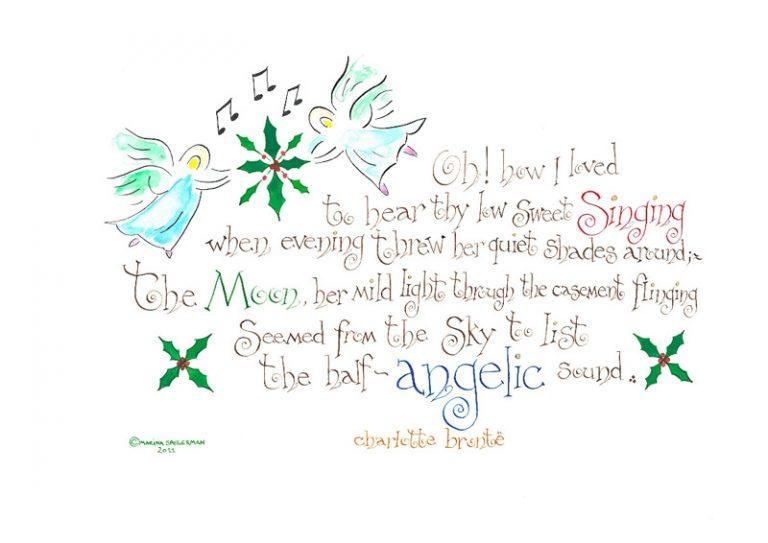 Oh! how I loved
to hear thy low sweet Singing
when evening threw her quiet shades around;~
The Moon, her mild light through the casement flinging
Seemed from the Sky to list
the half~angelic sound..
charlotte brontë
© MARINA SAGERMAN
2011